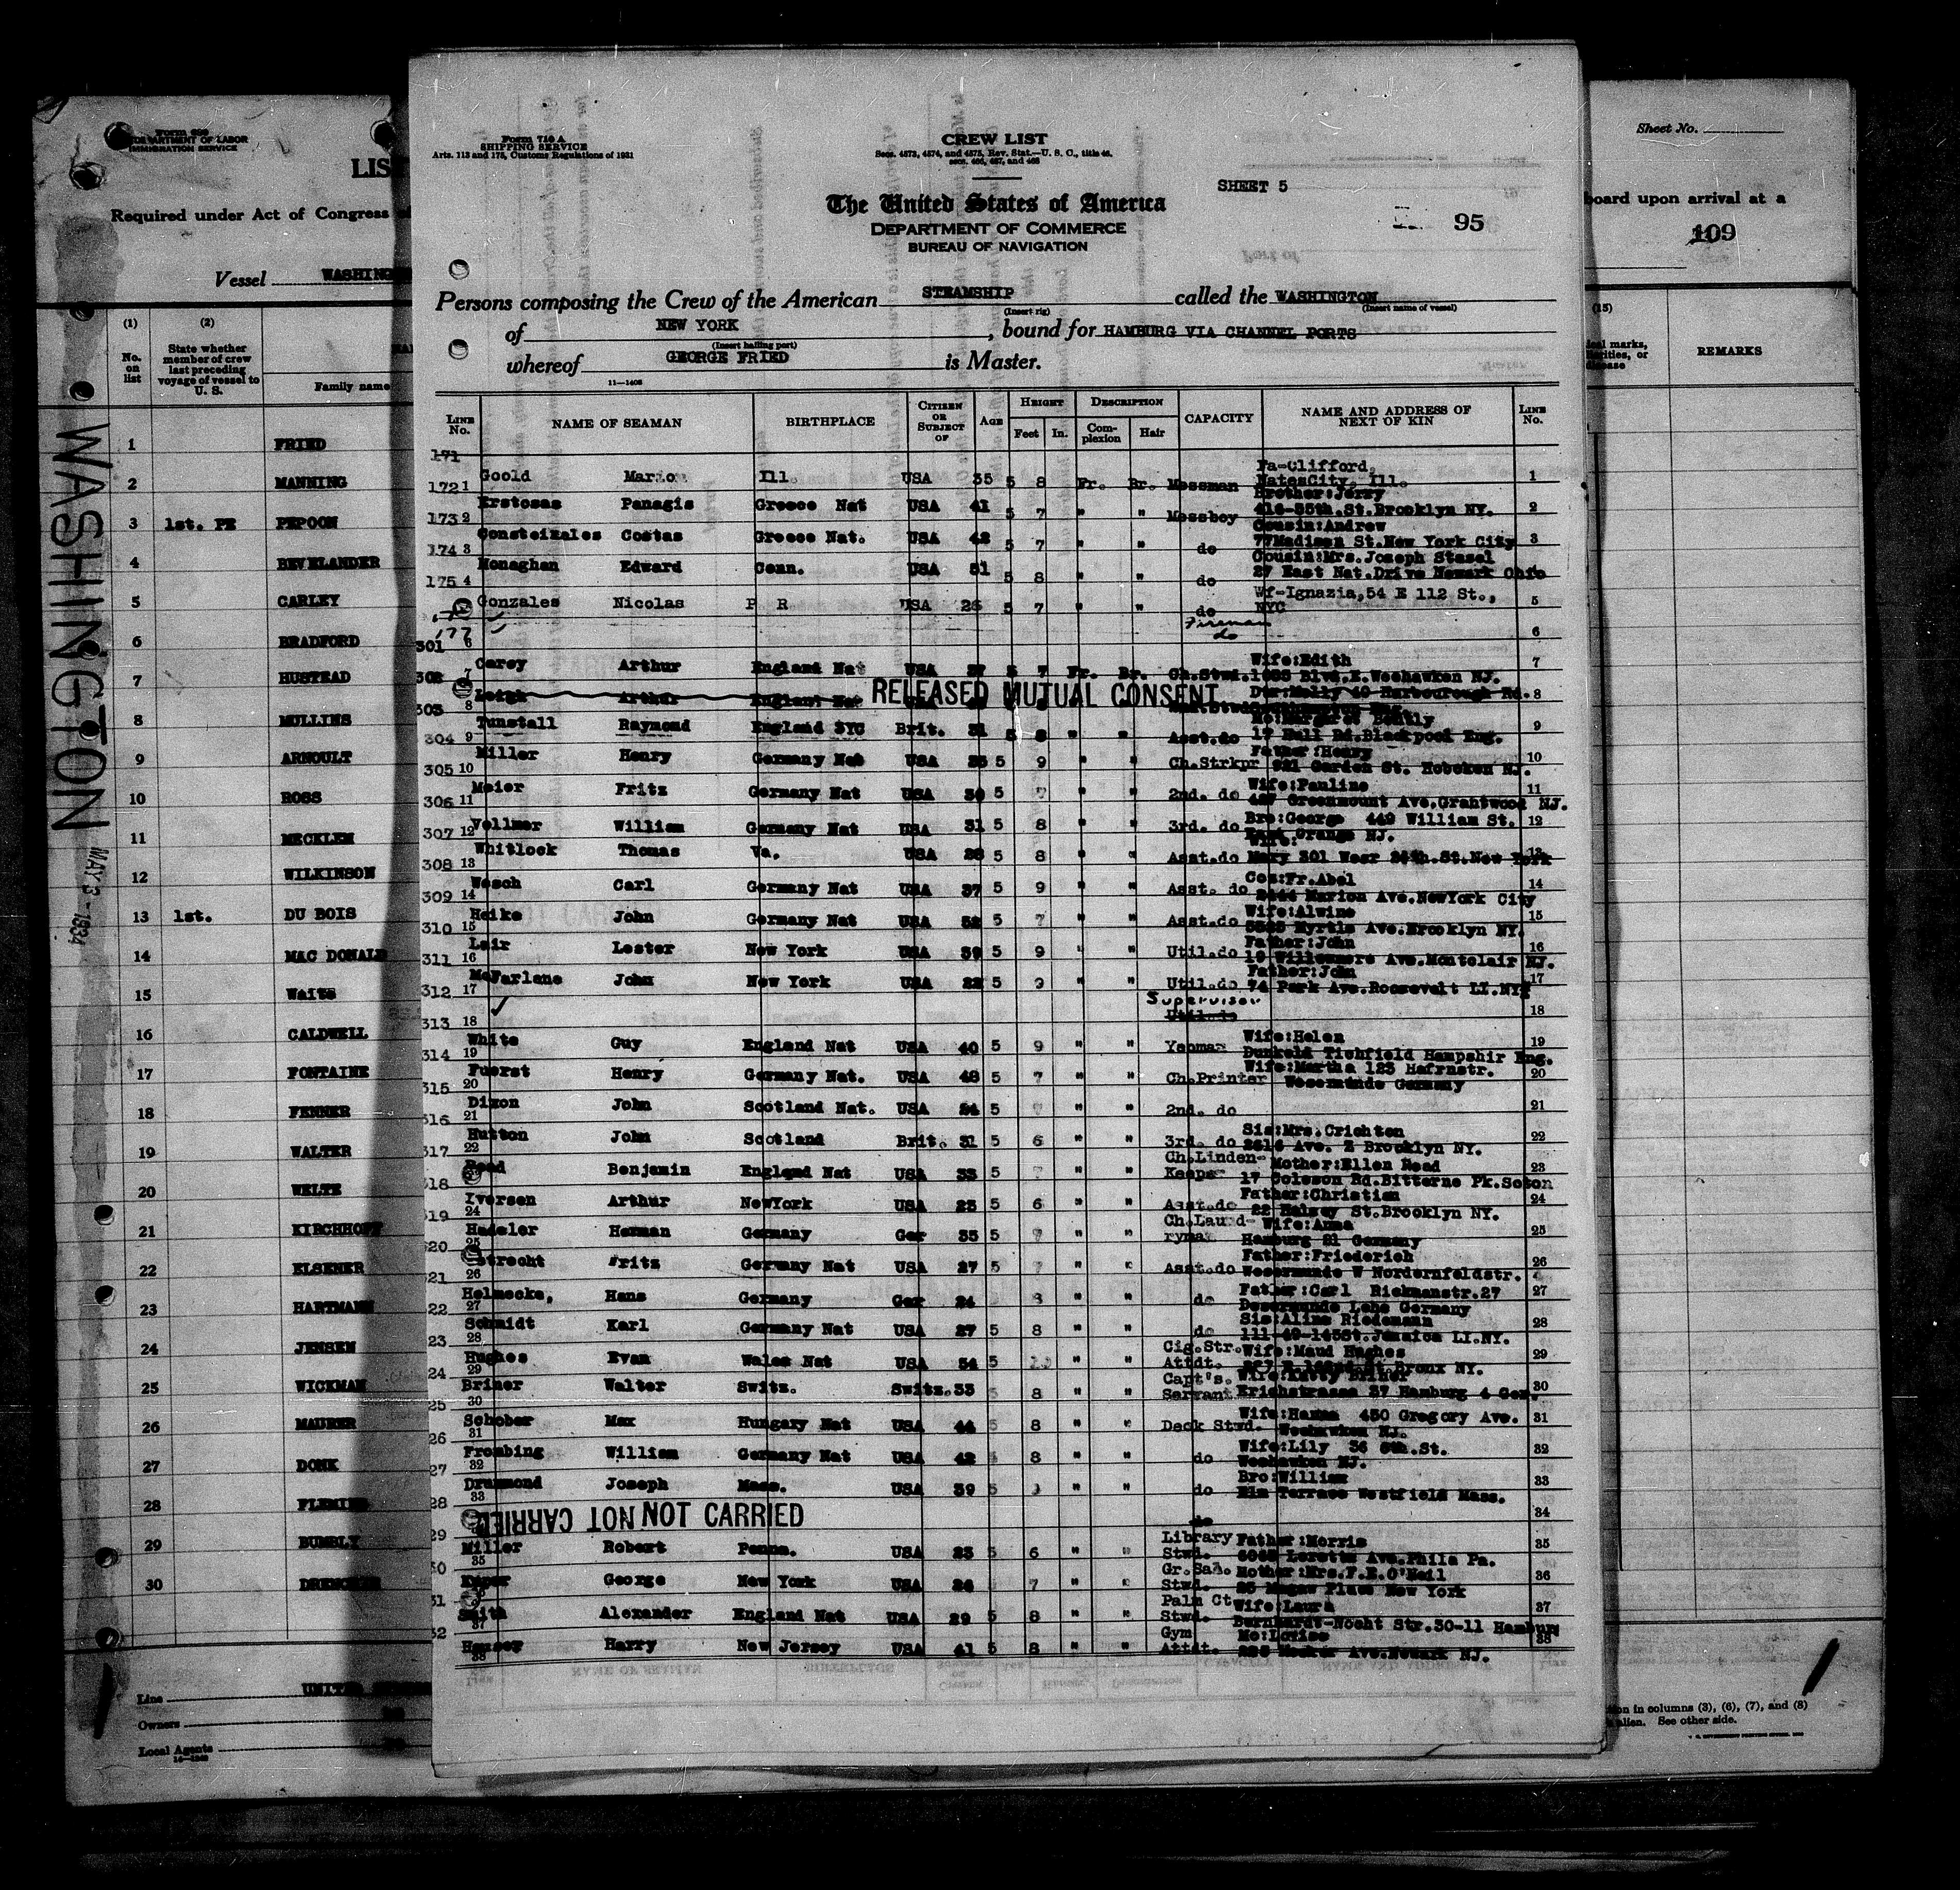 Form 710 A
SHIPPING SERVICE
Arts. 113 and 175, Customs Regulations of 1931
CREW LIST
Secs. 4573, 4574, and 4575, Rev. Stat.—U. S. C., title 46,
secs. 466, 467, and 468
SHEET 5
The United States of America
DEPARTMENT OF COMMERCE
BUREAU OF NAVIGATION
95
Persons composing the Crew of the American STEAMSHIP called the WASHINGTON
(Insert rig) (Insert name of vessel)
of NEW YORK, bound for HAMBURG VIA CHANNEL PORTS
(Insert hailing port)
whereof GEORGE FRIED is Master.
11—1408
LINE No. NAME OF SEAMAN BIRTHPLACE CITIZEN OR SUBJECT OF AGE HEIGHT Feet In. DESCRIPTION Complexion Hair CAPACITY NAME AND ADDRESS OF NEXT OF KIN LINE No.
171
Goold Marion Ill. USA 35 5 8 Fr. Br. Messman Fa-Clifford, Ill. 1
172 1
Erstosas Panagis Greece Nat USA 41 5 7 " " Messboy Brother:Jerry 416-55th.St.Brooklyn NY. 2
173 2
Costas Greece Nat. USA 42 5 7 " " do Cousin:Andrew 77Madison St.New York City 3
174 3
Monaghan Edward Conn. USA 31 5 8 " " do Cousin:Mrs.Joseph Stasel 27 East Nat.Drive Newark Ohio
175 4
Gonzales Nicolas P R USA 26 5 7 " " do Wf-Ignazia,54 E 112 St., NYC 5
177
Fireman
do
301 6 6
Carey Arthur England Nat USA 37 5 7 Fr. Br. Ch.Stwd. Wife:Edith Blvd.E.Weehawken NJ. 7
302 7
Leigh Arthur England Nat RELEASED MUTUAL CONSENT 8
303 8
Tunstall Raymond England SYC Brit. 31 5 8 " " Asst.do Mo:Margaret 17 Hall Rd.Blackpool Eng. 9
304 9
Miller Henry Germany Nat USA 5 9 " " Ch.Strkpr Father:Henry 921 Garden St. Hoboken NJ. 10
305 10
Meier Fritz Germany Nat USA 5 7 " " 2nd. do Wife:Pauline Greenmount Ave.Grantwood NJ. 11
306 11
Vollmer William Germany Nat USA 31 5 8 " " 3rd. do Bro:George 449 William St. East Orange NJ. 12
307 12
Whitlock Thomas Va. USA 5 8 " " Asst.do Wife: Mary 301 St.New York 13
308 13
Wesch Carl Germany Nat USA 37 5 9 " " Asst. do Cos:Fr.Abel Marion Ave.NewYork City 14
309 14
Heike John Germany Nat USA 5 7 " " Asst.do Wife:Alwine Myrtle Ave.Brooklyn NY. 15
310 15
Lair Lester New York USA 39 5 9 " " Util.do Father:John Ave.Montclair NJ. 16
311 16
McFarlane John New York USA 22 5 9 " " Util.do Father:John 74 Park Ave.Roosevelt LI.NY 17
312 17
Supervisor
Util.do 18
313 18
White Guy England Nat USA 40 5 9 " " Yeoman Wife:Helen Dunkeld Tichfield Hampshir Eng. 19
314 19
Fuerst Henry Germany Nat. USA 48 5 7 " " Ch.Printer Wife:Martha 123 Hafrnstr. Wesermunde Germany 20
315 20
Dixon John Scotland Nat. USA 5 7 " " 2nd. do 21
316 21
Hutton John Scotland Brit. 31 5 6 " " 3rd. do Sis:Mrs.Crichton Ave. Z Brooklyn NY. 22
317 22
Benjamin England Nat USA 33 5 7 " " Ch.Linden-Keeper Mother:Ellen 17 Rd.Bitterne Pk.Soton 23
318
Iversen Arthur NewYork USA 25 5 6 " " Asst.do Father:Christian 22 Halsey St.Brooklyn NY. 24
319 24
Hadeler Herman Germany Ger 35 5 7 " " Ch.Laundryman Wife:Anna Hamburg 21 Germany 25
320 25
Fritz Germany Nat USA 27 5 7 " " Asst.do Father:Friederich Wesermunde W Nordernfeldstr. 26
321 26
Helmecke, Hans Germany Ger 24 8 " " do Father:Carl Riekmanstr.27 Lehe Germany 27
322 27
Schmidt Karl Germany Nat USA 27 5 8 " " do Sis:Aline Riedemann Jamaica LI.NY. 28
323 28
Hughes Evan Wales Nat USA 54 5 " " Cig.Str. Attdt. Wife:Maud Hughes Bronx NY. 29
324 29
Briner Walter Switz. Switz. 33 8 " " Capt's. Servant Wife:Ketty Briner Erichstrasse 37 Hamburg 4 Ger. 30
325 30
Schober Max Hungary Nat USA 44 5 8 " " Deck Stwd. Wife:Hanna 450 Gregory Ave. Weehawken NJ. 31
326 31
Frombing William Germany Nat USA 42 8 " " do Wife:Lily 36 St. Weehawken NJ. 32
327 32
Drummond Joseph Mass. USA 39 5 " " do Bro:William Elm Terrace Westfield Mass. 33
328 33
NOT CARRIED NOT CARRIED do 34
329
Miller Robert Penna. USA 23 5 6 " " Library Stwd. Father:Morris Loretta Ave.Phila Pa. 35
330 35
George New York USA 7 " " Gr.Sa. Stwd. Mother:Mrs.F.E.O'Neil Place New York 36
331
Smith Alexander England Nat USA 29 5 8 " " Palm Ct Stwd. Wife:Laura Bernhardt-Nocht Str.30-11 Hamburg 37
332 37
Harry New Jersey USA 41 5 8 " " Gym Attdt. Mo:Louise Ave.Newark NJ. 38
38
Form 680
DEPARTMENT OF LABOR
IMMIGRATION SERVICE
LIS
Required under Act of Congress
Vessel WASHING
(1) (2)
No. on list
State whether member of crew last preceding voyage of vessel to U. S.
Family name
1 FRIED
2 MANNING
3 1st. PE PEPOON
4 BEVELANDER
5 CARLEY
6 BRADFORD
7 HUSTEAD
8 MULLINS
9 ARNOULT
10 ROSS
11 MECKLEM
12 WILKINSON
13 1st. DU BOIS
14 MAC DONALD
15 Waite
16 CALDWELL
17 FONTAINE
18 FENNER
19 WALTER
20 WELTE
21 KIRCHHOFF
22 ELSENER
23 HARTMANN
24 JENSEN
25 WICKMAN
26 MAURER
27 DONK
28 FLEMING
29 BUMBLY
30
Line UNITED
Owners
Local Agents
WASHINGTON
MAY 3 - 1934
Sheet No.
board upon arrival at a
109
(15)
REMARKS
in columns (3), (6), (7), and (8)
alien. See other side.